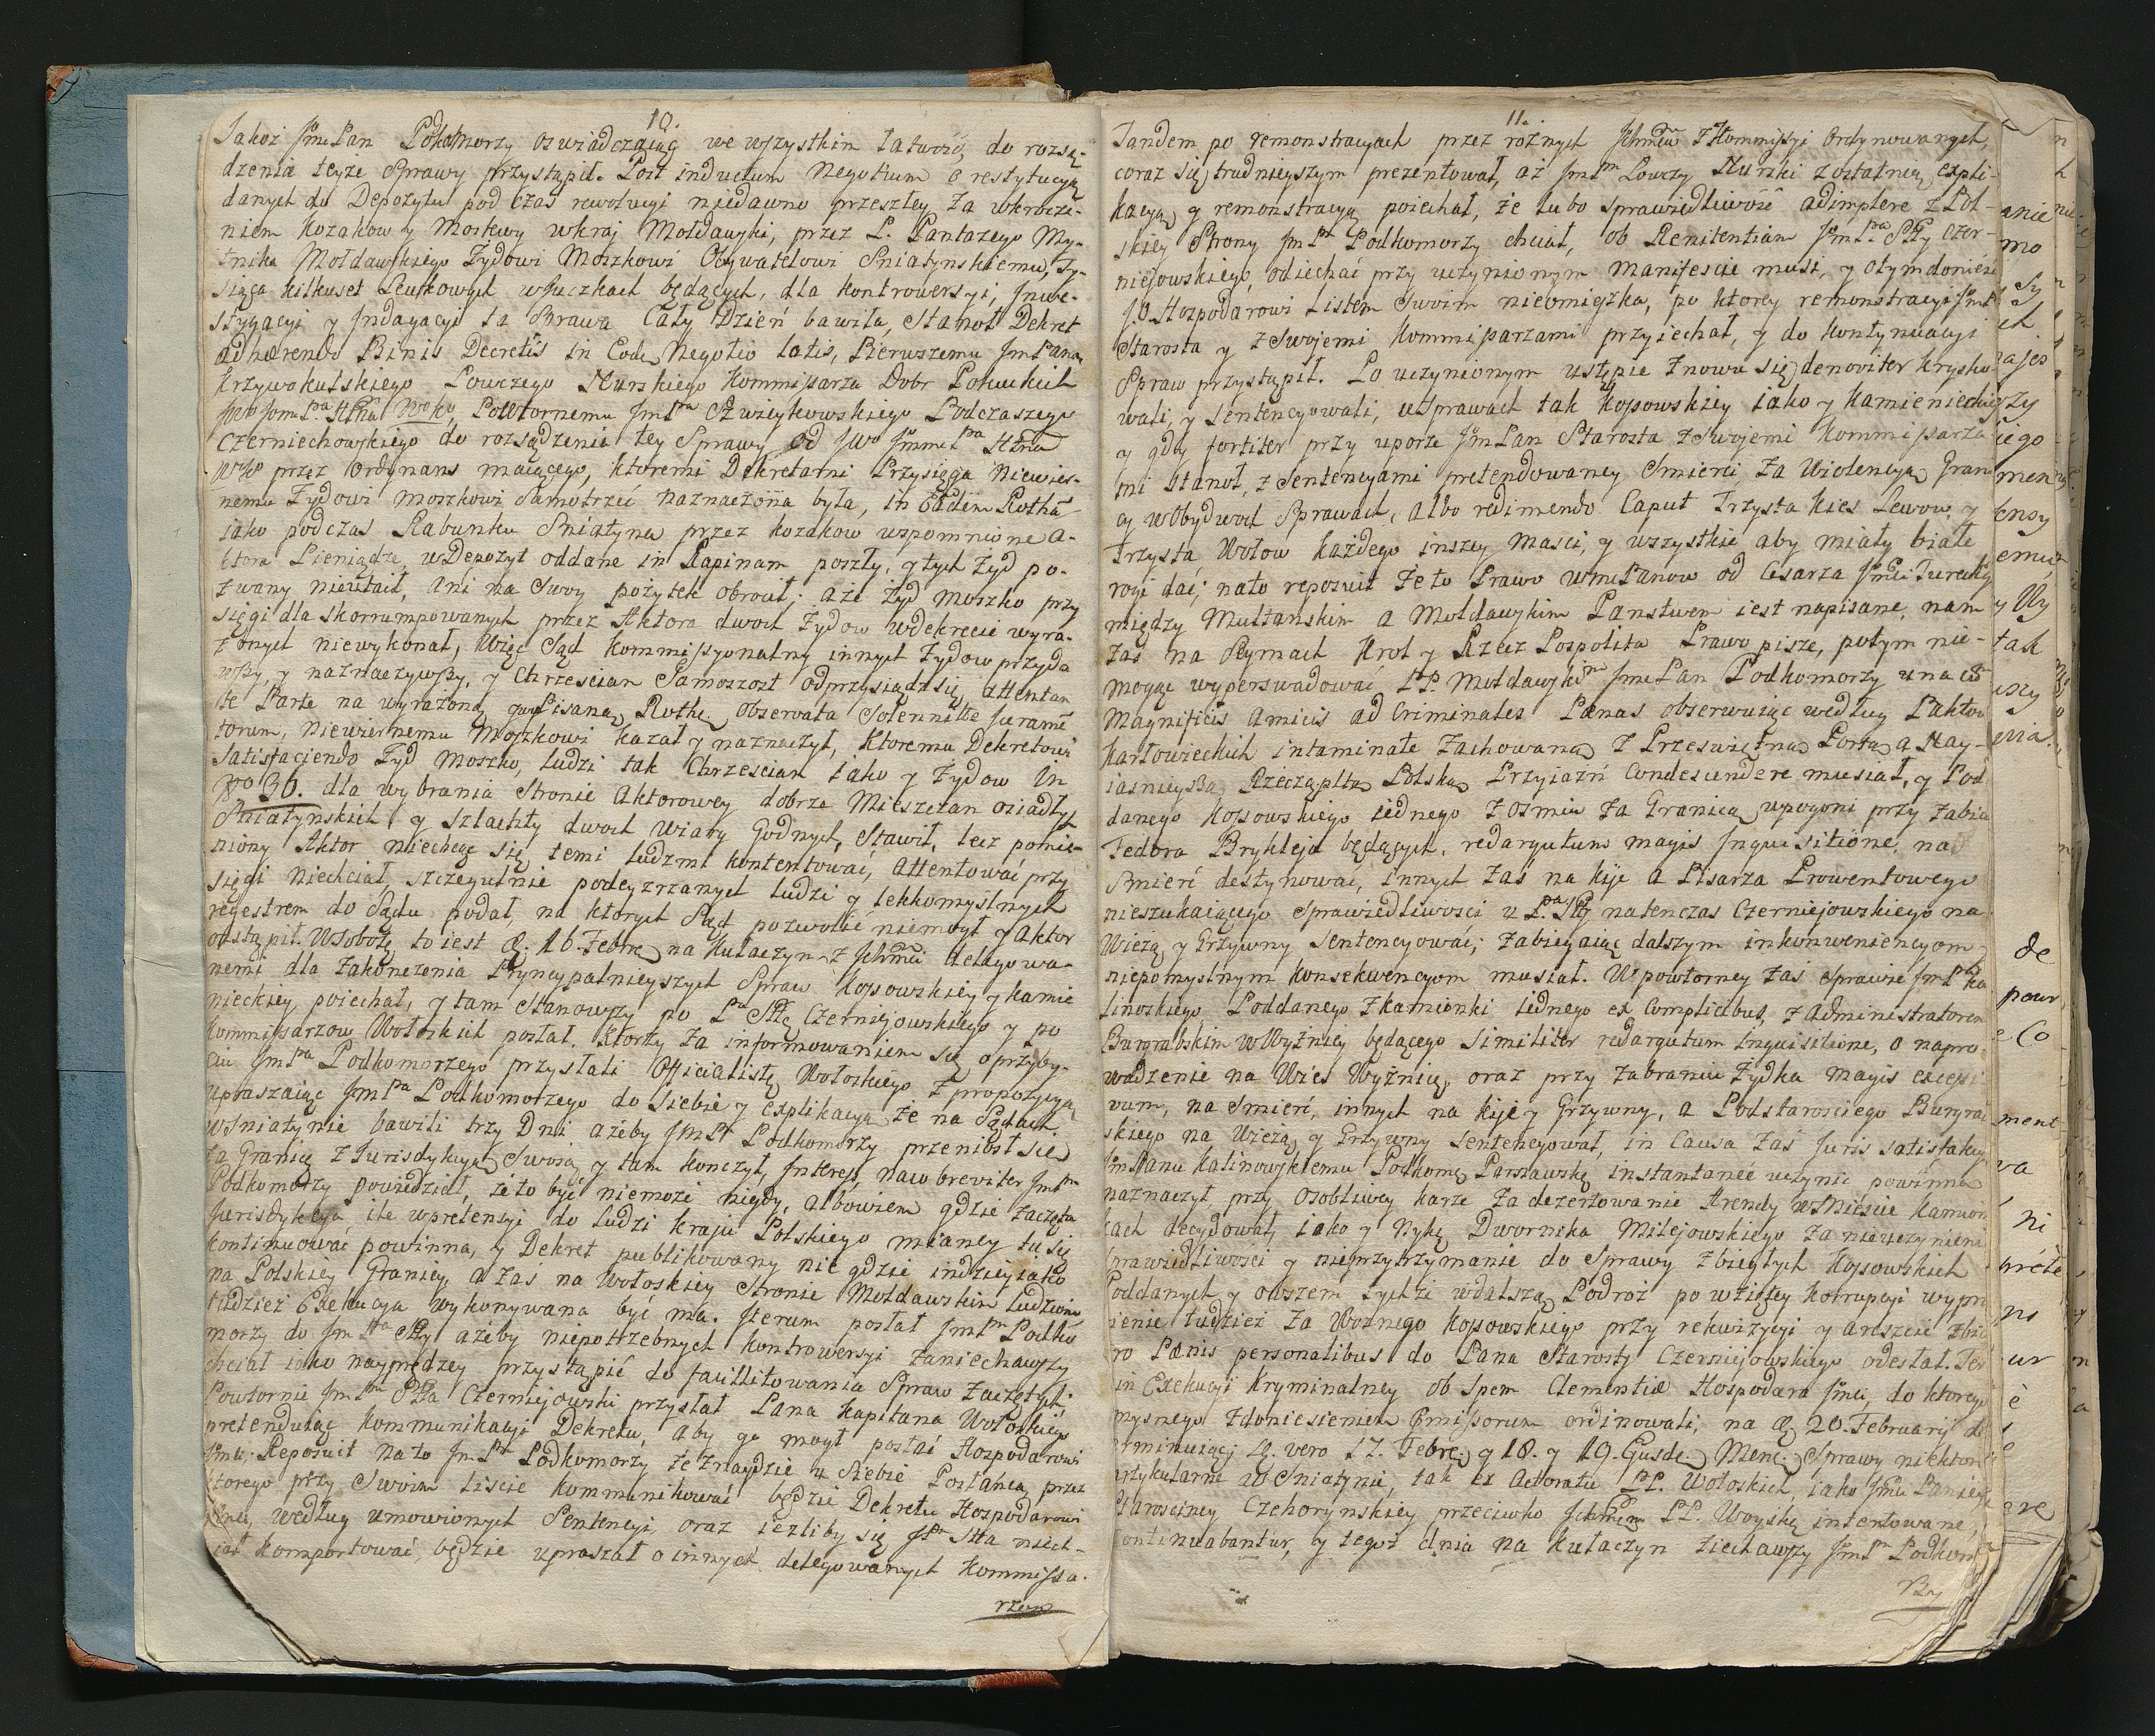 10.
Jakoż JmcPan Podkomorzy oswiadczaiąc we wszystkim łatwość, do rozsą-
dzenia teyże Sprawy przystąpił. Post inductum Negotium o restytucyą
danych do Depozytu pod czas rewolucyi niedawno przeszłey, za wkrocze-
niem Kozakow y Moskwy w kraj Mołdawski, przez P. Pantazego My-
tnika Mołdawskiego Żydowi Moszkowi Obywatelowi Sniatynskiemu, Ty-
siąca kilkuset Lewkowych w Juczkach będących, dla kontrowersyi, Inwe-
stygacyi y Indagacyi ta Sprawa Cały Dzień bawiła, Stanoł Dekret
adhærendo Binis Decretis in Eode Negotio latis, Pierwszemu JmPana
Krzywokulskiego Łowczego Nurskiego Kommissarza Dobr Pokuckich
Powtornemu JmPa Podczaszego
Czerniechowskiego do rozsądzenia tey Sprawy od
przez Ordynans maiącego, ktoremi Dekretami Przysięga Niewier-
nemu Żydowi Moszkowi Samotrzeć naznaczona była, in Eadem Rotha
jako podczas Rabunku Sniatyna przez Kozakow wspomnione A-
ktora Pieniądze, w Depozyt oddane in Rapinam poszły, y tych Żyd po-
zwany nieutaił, ani na Swoy pożytek obrocił; a że Żyd Moszko przy
sięgi dla skorrumpowanych przez Aktora dwoch Żydow w dekrecie wyra-
żonych niewykonał, Więc Sąd Kommissyonalny innych Żydow przyda
wszy, y naznaczywszy, y Chrzescian Samoszost odprzysiądz się attentan
te Parte na wyrażoną Rothę Observata Solennitte Juramē
torum, Niewiernemu Moszkowi kazał y naznaczył, Ktoremu Dekretowi
Satisfaciendo Żyd Moszko, ludzi tak Chrzescian iako y Żydow in
Nro 30. dla wybrania Stronie Aktorowey dobrze Mieszczan osiadłych
Sniatynskich y Szlachty dwoch Wiary Godnych, Stawił, lecz pomie-
niony Aktor niechcąc się temi ludzmi kontentować, Attentować przy
sięgi niechciał, szczegulnie podeyzrzanych ludzi y lekkomyslnych
regestrem do Sądu podał, na ktorych Sąd pozwolić niemogł y Aktor
odstąpił. W Sobotę to iest d. 16. Febre na Kułaczyn z Jchmci delegowa-
nemi dla zakończenia Pryncypalnieyszych Spraw Kossowskiey y Kamie
nieckiey poiechał, y tam Stanowszy po Pa Sttę Czerniejowskiego y po
Kommissarzow Wołoskich posłał. Ktorzy za informowaniem się o przyby-
ciu JmPa Podkomorzego przysłali Officialistę Wołoskiego z propozycyą
upraszaiąc JmPa Podkomorzego do siebie y explikacyą że na Sądach
w Sniatynie bawili trzy Dni ażeby JmPn Podkomorzy przeniosł się
za Granicę z Jurisdykcyą Swoią y tam konczył, Interes, na co breviter JmPn
Podkomorzy powiedział, że to być niemoże nigdy, albowiem gdzie zaczęta
Jurisdykcya, ile w pretensyi do ludzi kraju Polskiego mianey tu się
kontinuować powinna, y Dekret publikowany nie gdzie indziey iako
na Polskiey Granicy, a zaś na Wołoskiey Stronie Mołdawskim ludziom
tudzież Exekucya wykonywana być ma. Iterum posłał JmPn Podko
morzy do JmPa Stty ażeby niepotrzebnych Kontrowersyi zaniechawszy
chciał iako nayprędzey przystąpić do facilitowania Spraw zaczętych;
Powtornie JmPn Stta Czerniejowski przysłał Pana Kapitana Wołoskiego
pretenduiąc Kommunikacyi Dekretu, aby go mogł posłać Hospodarowi
Jmci; Reposuit na to JmPn Podkomorzy że znaydzie u Siebie Posłańca, przez
ktorego przy Swoim liscie Kommunikować będzie Dekretu Hospodarowi
Jmci, według umowionych Sentencyi, oraz iezliby się JPn Stta niech-
ciał komportować, będzie upraszał o innych delegowanych Kommissa-
rzow
11.
Tandem po remonstracyach przez rożnych Jchmciw z Kommissyi Ordynowanych,
coraz się trudnieyszym prezentował, aż JmPn Łowczy Nurski z ostatnią expli-
kacyą y remonstracyą poiechał, że lubo sprawiedliwość adimplere z Pol-
skiey Strony JmPn Podkomorzy chciał, ob Renitentiam JmPa Stty Czer-
niejowskiego, odiechać przy uczynionym Manifescie musi, y o tym donieść
J.O. Hospodarowi listem Swoim nieomieszka, po ktorey remonstracyi JmPn
Starosta y z Swojemi Kommissarzami przyiechał, y do kontynuacyi
Spraw przystąpił. Po uczynionym ustępie znowu się denoviter krysko
wali, y sentencyowali, w Sprawach tak Kossowskiey iako y Kamienieckiey
y gdy fortiter przy uporze JmPan Starosta z Swojemi Kommissarza
mi stanoł, z Sentencyami pretendowaney Smierci, za Wiolencyą Grani
cy w Obydwoch Sprawach, albo redimendo Caput Trzysta kies Lewow, y
Trzysta Wołow każdego inszey Masci, y wszystkie aby miały białe
rogi dać; na to reposuit że to Prawo WmPanow od Cesarza Jmci Tureckiego
między Multanskim a Mołdawskim Panstwem iest napisane, nam
zaś na Seymach Krol y Rzecz Pospolita Prawo pisze, potym nie-
mogąc wyperswadować PP. Mołdawskim JmcPan Podkomorzy una cū
Magnificis Amicis ad Criminales Pœnas obserwuiąc według Paktow
Karłowieckich intaminate zachowaną z Prześwietną Portą a Nay-
iasnieyszą Rzecząpltą Polską Przyjaźń Condescendere musiał, y Pod
danego Kossowskiego iednego z osmiu za Granicą w pogoni przy zabiciu
Fedora Bryktieja będących, redargutum magis Inquisitione, na
Smierć destynować, innych zaś na kije a Pisarza Prowentowego
nieszukaiącego Sprawiedliwosci u Pa Stty natenczas Czerniejowskiego na
Wieżą y Grzywny sentencyować; zabiegaiąc dalszym inkonweniencyom
niepomyslnym konsekwencyom musiał. W powtorney zaś Sprawie JmPa Ka
linoskiego Poddanego z Kamionki iednego ex Complicibus, z Administratorem
Burgrabskim w Wyżnicy będącego Similiter redargutum Inquisitione, o napro
wadzenie na Wies Wyżnicę, oraz przy zabraniu Żydka magis excessi
vum, na smierć, innych na kije y Grzywny, a Podstarosciego Burgrab
skiego na Wieżą y Grzywny sentencyował, in Causa zaś Juris satisfakcyą
JmPanu Kalinowskiemu Podkomę Parnawskę instantanee uczynic powinną
naznaczył przy osobliwey karze za dezertowanie Arendy w Miescie Kamion
kach decydował, iako y Nykę Dwornika Milejowskiego za nieuczynienie
sprawiedliwości y nieprzytrzymanie do Sprawy zbiegłych Kossowskich
Poddanych y owszem tychże w dalszą Podroż po wziętey korrupcyi wypra
wienie tudzież za Woznego Kossowskiego przy rekwizycyi y areszcie zbic
ro Pœnis personalibus do Pana Starosty Czerniejowskiego odesłał. Ter
in Exekucyi Kryminalney ob Spem Clementiæ Hospodara Jmci, do ktorego
mysnego z doniesieniem Emissorum ordinowali, na d. 20. Februarij de
terminuiąc; d. vero 17. Febre. y 18. y 19. Eiusde. Mens. Sprawy niektore
partykularne w Sniatynie, tak ex Actoratu PP. Wołoskich, iako Jmci Paniey
Starosciney Czehorynskiey przeciwko Jchmciom PP. Woyskę intentowane,
continuabantur, y tegoż dnia na Kułaczyn ziechawszy JmPn Podkom
rzy
anie
mo
sy
ch
ajes
rzy
iego
men
ensy
emu
y Wy
tak
uszy
de
powr
e Co
ment
va
ni
no
ur
è
ere